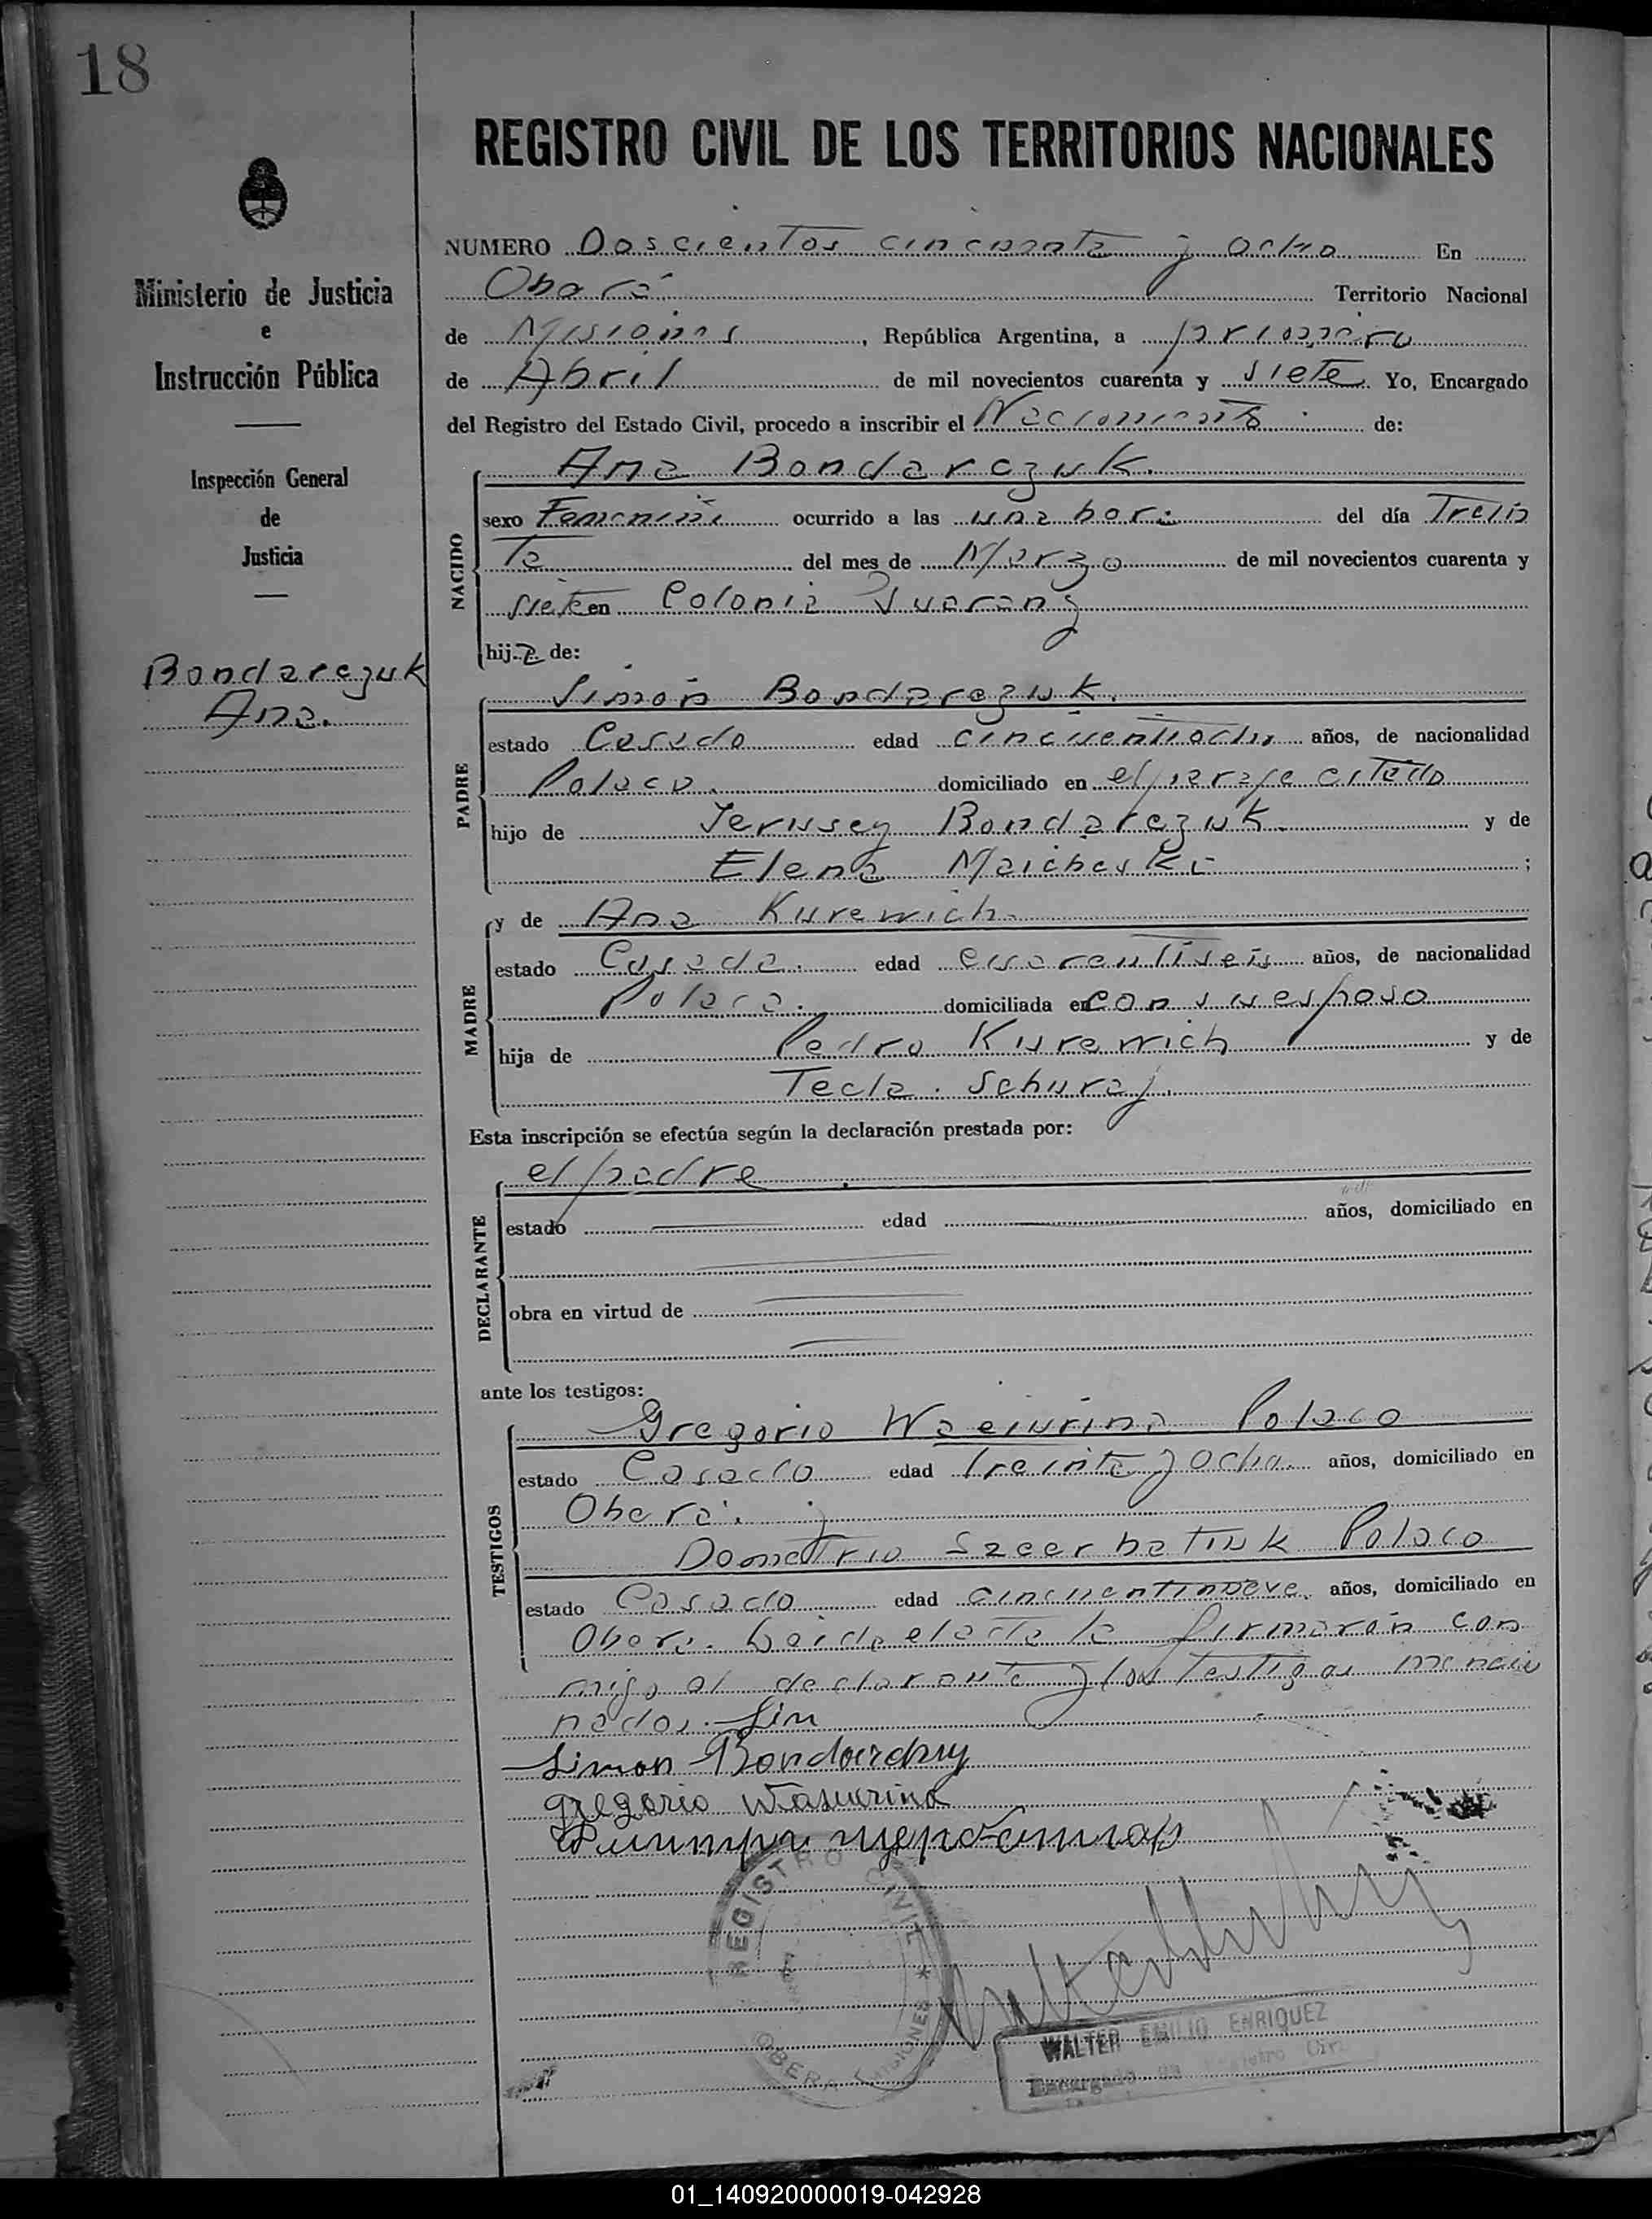 18
REGISTRO CIVIL DE LOS TERRITORIOS NACIONALES
Ministerio de Justicia
e
Instrucción Pública
Inspección General
de
Justicia
Bondarczuk
Ana.
NUMERO Doscientos cincuenta y ocho En
Oberá Territorio Nacional
de Misiones, República Argentina, a primero
de Abril de mil novecientos cuarenta y siete Yo, Encargado
del Registro del Estado Civil, procedo a inscribir el Nacimiento de:
NACIDO
Ana Bondarczuk.
sexo Femenino ocurrido a las una hora del día Trein
Ta del mes de Marzo de mil novecientos cuarenta y
siete en Colonia
hija de:
PADRE
Simón Bondarczuk.
estado Casado edad cincuentiocho años, de nacionalidad
Polaco. domiciliado en el paraje citado
hijo de Bondarczuk. y de
Elena ;
MADRE
y de Ana Kurewich.
estado Casada. edad cuarentiseis años, de nacionalidad
Polaca. domiciliada en con su esposo
hija de Pedro Kurewich y de
Tecla Schuraj.
Esta inscripción se efectúa según la declaración prestada por:
DECLARANTE
el padre
estado edad años, domiciliado en
obra en virtud de
ante los testigos:
TESTIGOS
Gregorio Polaco
estado Casado edad treinta y ocho. años, domiciliado en
Oberá. y
Demetrio Szcerbatiuk Polaco
estado Casado edad cincuentinueve años, domiciliado en
Oberá. Leida el acta la firmaron con
migo el declarante y los testigos mencio
nados.
Simon
gregorio Wasiurina
REGISTRO CIVIL
OBERA MISIONES
WALTER EMILIO ENRIQUEZ
Encargado del Registro Civil
01_140920000019-042928